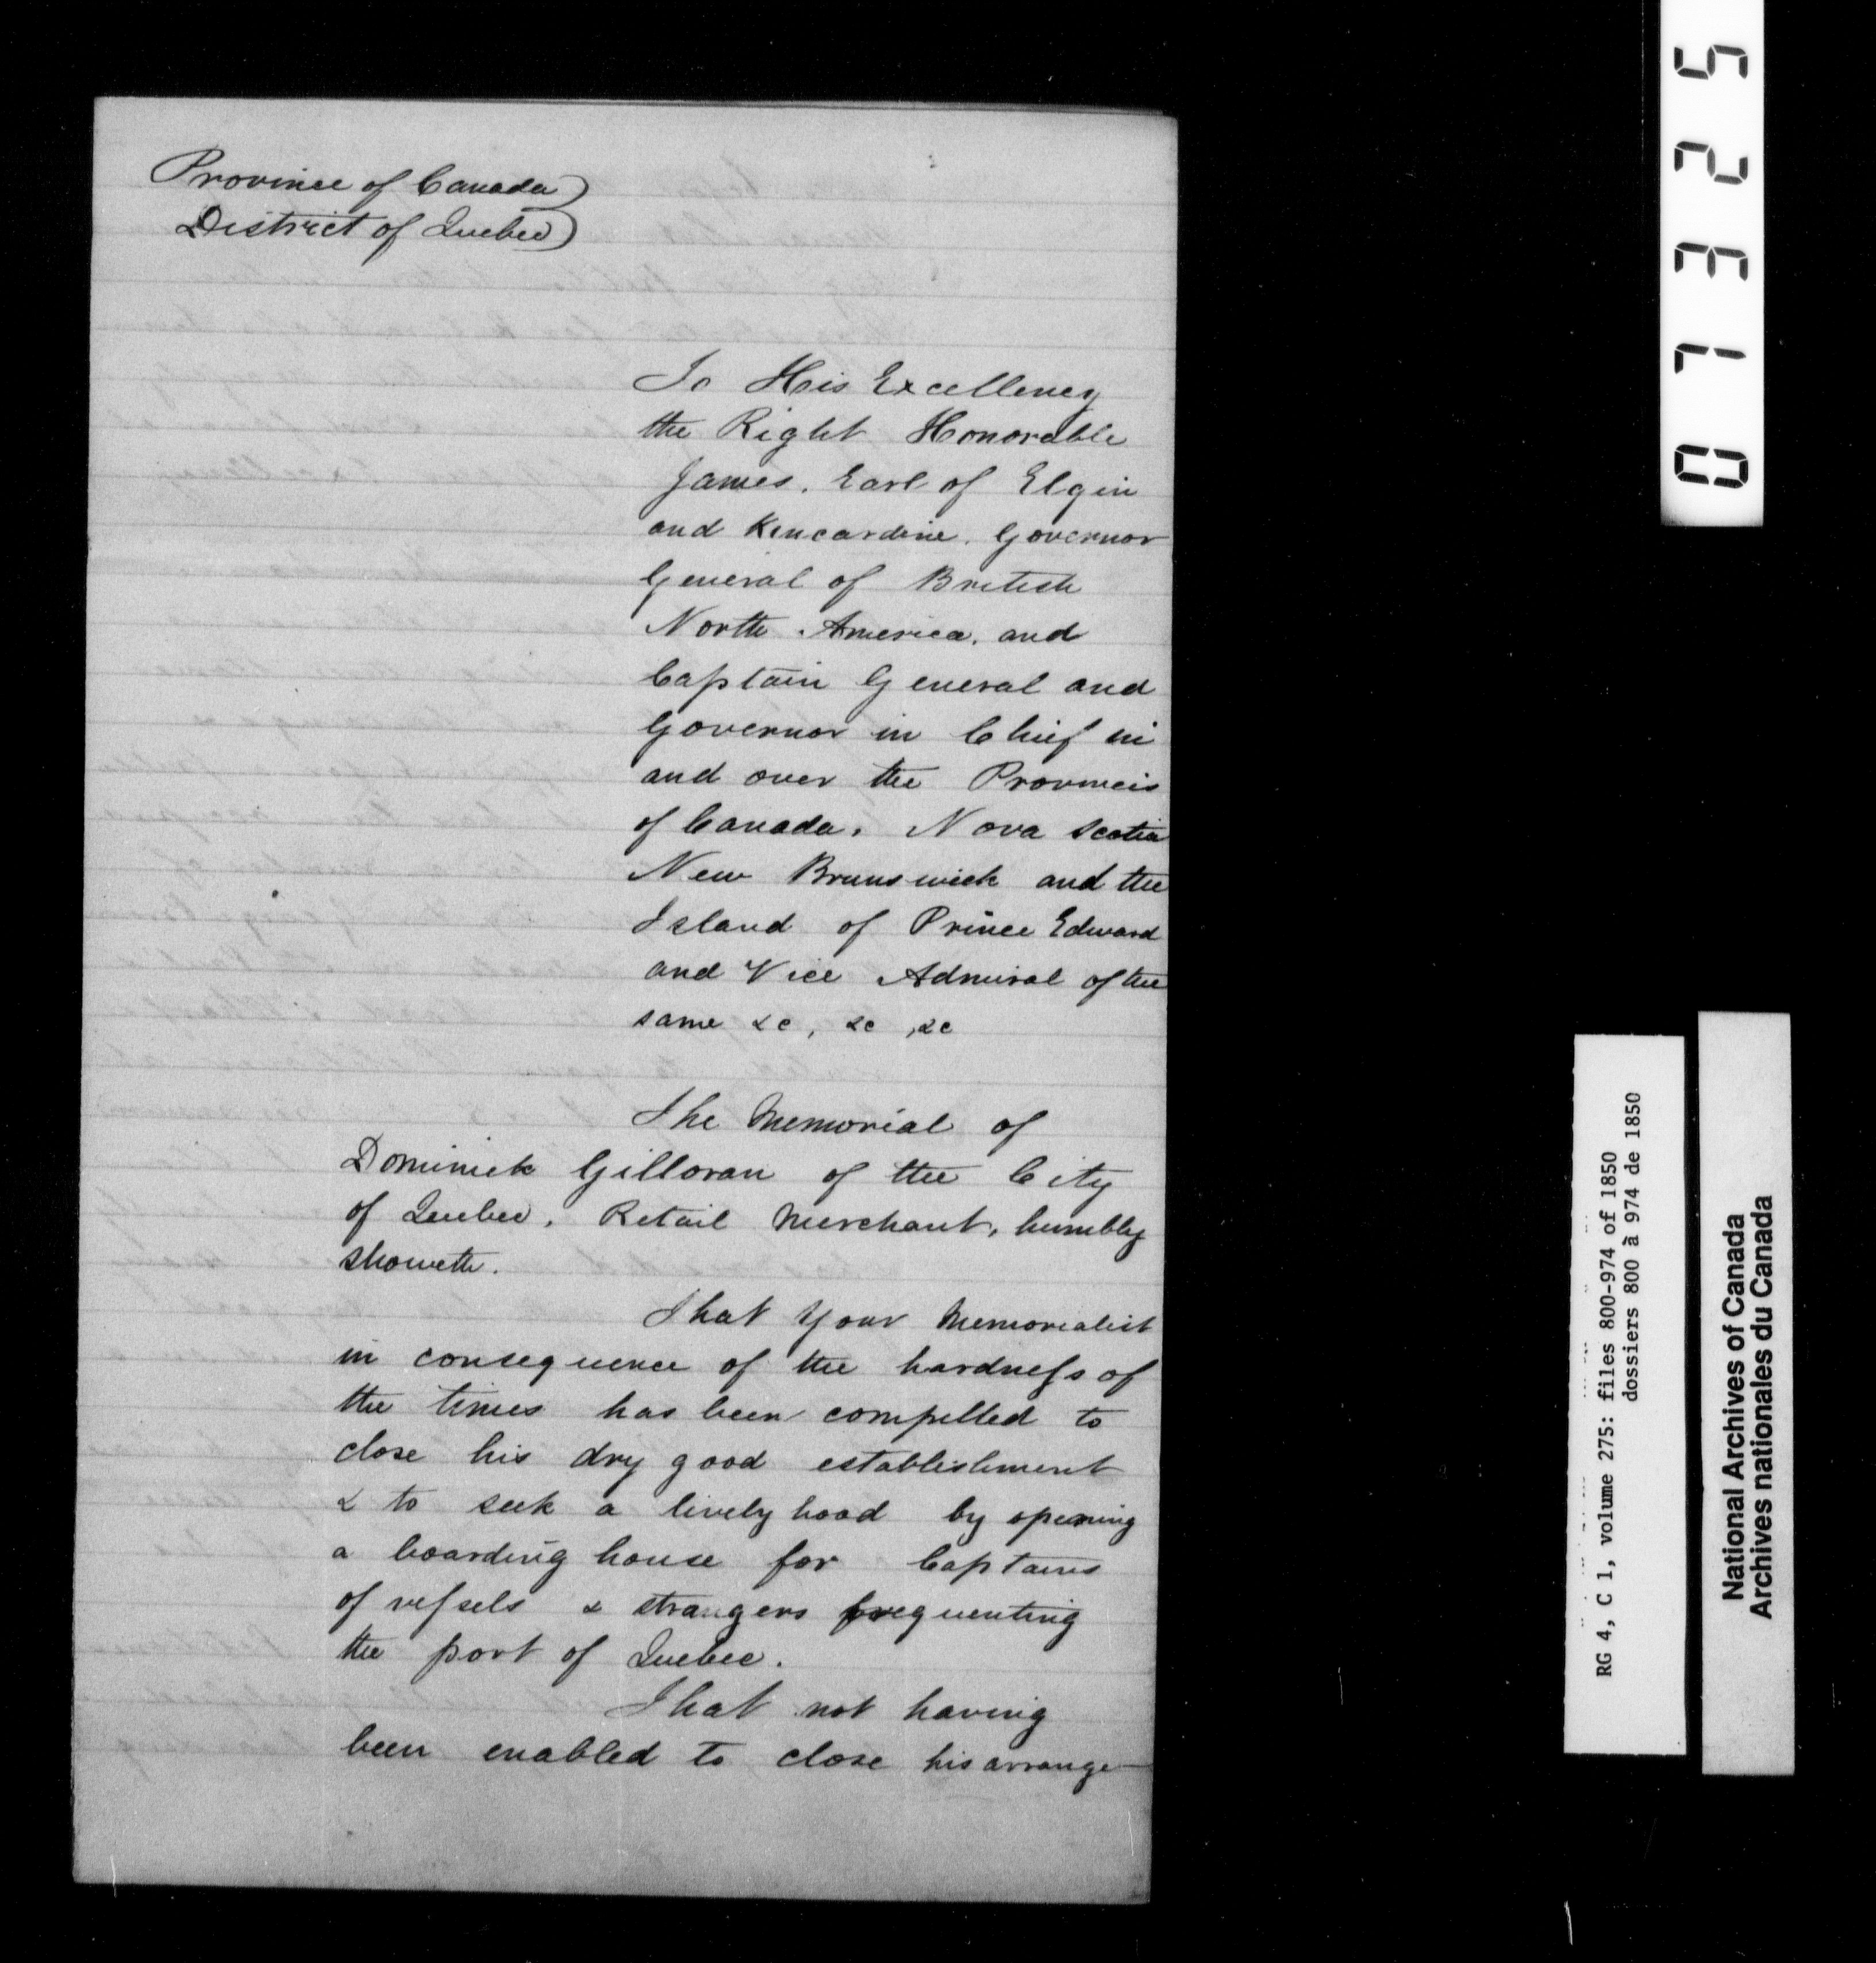 Province of Canada)
District of Quebec)
To His Excellency
the Right Honorable
James, Earl of Elgin
and Kincardine, Governor
General of British
North America, and
Captain General and
Governor in Chief in
and over the Provinces
of Canada, Nova Scotia
New Brunswick and the
Island of Prince Edward
and Vice Admiral of the
same &c, &c, &c
The Memorial of
Dominick Gilloran of the City
of Quebec, Retail Merchant, humbly
showeth.
That your Memorialist
in consequence of the hardness of
the times has been compelled to
close his dry good establishment
& to seek a livelyhood by opening
a boarding house for Captains
of vessels & strangers frequenting
the port of Quebec.
That not having
been enabled to close his arrange
07325
RG 4, C 1, volume 275: files 800-974 of 1850
dossiers 800 à 974 de 1850
National Archives of Canada
Archives nationales du Canada